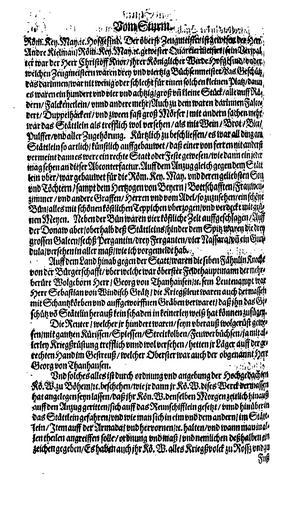 Vom Sturm.
Röm. Key. May. ꝛc. Hoffgesind. Der öberst Zeugmeister ist gewesen der Herr
Andre Kielman / Röm. Key. May. ꝛc.
ter war der Herr Christoff Knor / ihrer Königlicher Würde
welchen Zeugmeistern waren drey und viertzig Büchsenmeister / Das Geschütz /
das darinnen / war mit wenig der schlecht für einen solchen kleinen Platz / dann
es waren ein hundert und vier und achtzig groß unnd kleine Stück / alle auff Rä-
dern / Falckenerlein / unnd andere mehr / Auch zu dem waren darinnen Falco-
net / Duppelhäcken / und zween fast groß Mörser / mit andern sachen mehr
war das Stättlein als trefflich wol versehen / als mit Wein / Brot / Bier /
Pulffer / und aller Zugehörung. Kürtzlich zu beschliessen / es war all ding am
Stättlein so artlich / künstlich auffgebauwet / daß einer von fern mit anders
vermeint dann es were ein rechte Statt oder Feste gewesen / wie dann ein jeder
mag sehen an dieser Abconterfactur. Auff dem Anzug gleich gegen dem Stätt-
lein uber / war gebauwet für die Röm. Key. May. und deren geliebsten Son
und Töchtern / sampt dem Hertzogen von Beyern / Bottschafften / Frauwen-
zimmer / und andere Graffen / Herren und vom Adel / so zuzusehen ein schöne
Bün / alles mit schönen köstlichen Teppichen uberzogen / und verdeckt mit grü-
nen Meyen. Neben der Bün waren vier köstliche Zelt auffgeschlagen / Auff
der Donaw aber / oberhalb deß Stättleins / hinder dem Spitz waren die drey
grossen Galeen / sechs Pergantin / drey Ferganten / vier Nassarn / und ein Gun-
dula / versehen in aller maß / wie ich vorgemelt hab.
Auff dem Land hinab gegen der Statt / waren die sieben Fähnlin Knecht
von der Bürgerschafft / uber welche war öberster Feldhauptmann der mehr-
berürt Wolgeborn Herr / Georg von Thanhausen / ꝛc. sein Leutenampt war
Herr Sebastian von Windisch Gräb / ihr Kriegsleut waren auch dermassen
mit Schantzkörben und auffgeworffnen Gräben verwaret / daß ihn das Ge-
schütz vo Stättlein herauß kein schaden in keinerley weiß hat können zufügen.
Die Reuter / welcher je hundert waren / seyn überauß wolgerüst gewe-
sen / mit gantzen Küriffen / Spiessen / Streitkolben / Feuwerbüchsen / ja mit al-
lerley Kriegsrüstung trefflich unnd wol versehen / hetten jr Läger auff der ge-
rechten Hand im Gestreuß / welcher Oberster war auch der obgenannt Herr
Georg von Thanhausen.
Und solches alles ist durch ordnung und angebung der Hochgedachten
Kö. W. zu Böhem / ꝛc. beschehen / wie jr dann jr Kö. W. dieses Werck vermassen
hat angelegen seyn lassen / daß ihr Kön. W. denselben Morgen zeitlich hinauß
auff den Anzug geritten / sich auff das Rennschifflein gesetzt / unnd hinüber in
das Stättlein gefahren / und wie man sich in ein und dem andern / im Stätt-
lein / Item auff der Armada / und hervornen / ꝛc. halten / und wann man an al-
len theilen angreiffen solle / ordnung und maß / und nemlichen deßhalben ein
zeichen gegeben / Es haben auch ihr Kö. W. alles Kriegsvolck zu Roß / und zu
Fuß